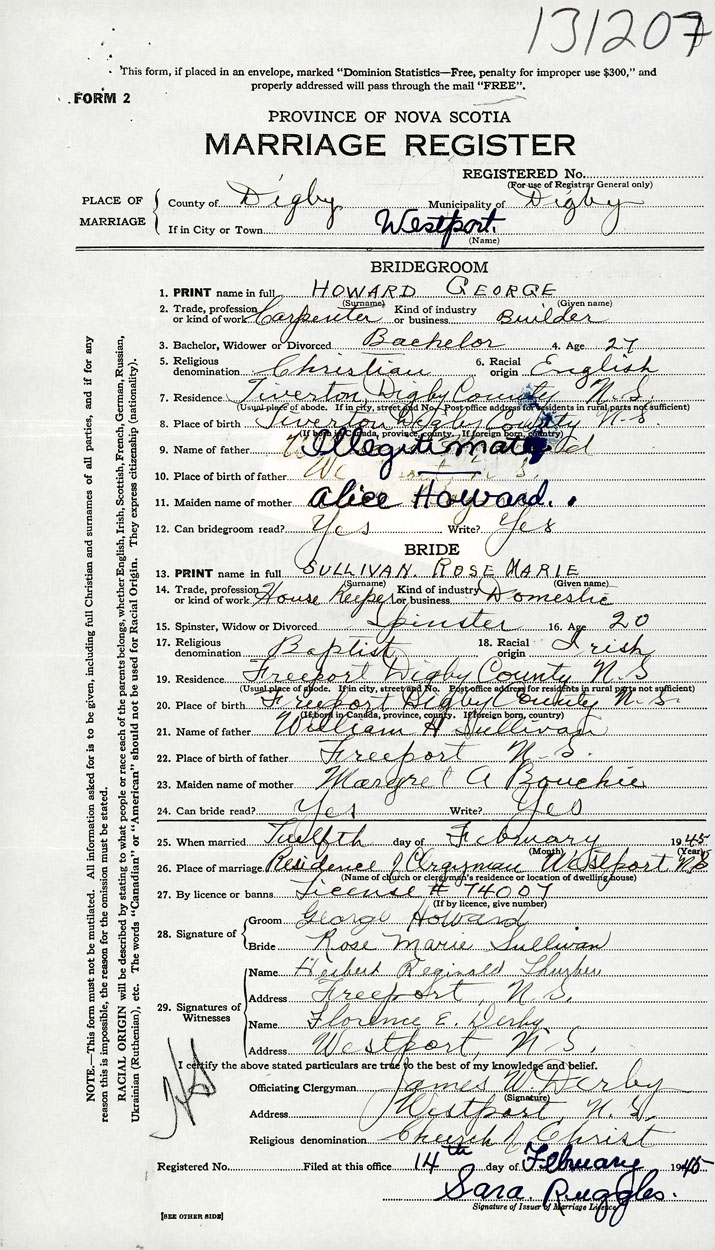 131207
This form, if placed in an envelope, marked "Dominion Statistics—Free, penalty for improper use $300," and
properly addressed will pass through the mail "FREE".
FORM 2
PROVINCE OF NOVA SCOTIA
MARRIAGE REGISTER
REGISTERED No.
(For use of Registrar General only)
PLACE OF MARRIAGE
County of Digby Municipality of Digby
If in City or Town Westport.
(Name)
BRIDEGROOM
1. PRINT name in full HOWARD GEORGE
(Surname) (Given name)
2. Trade, profession or kind of work Carpenter Kind of industry or business Builder
3. Bachelor, Widower or Divorced Bachelor 4. Age 27
5. Religious denomination Christian 6. Racial origin English
7. Residence Tiverton, Digby County N.S.
(Usual place of abode. If in city, street and No. Post office address for residents in rural parts not sufficient)
8. Place of birth Tiverton Digby County N.S.
(If born in Canada, province, county. If foreign born, country)
9. Name of father Illegitimate
10. Place of birth of father
11. Maiden name of mother Alice Howard.
12. Can bridegroom read? Yes Write? Yes
BRIDE
13. PRINT name in full SULLIVAN. ROSE MARIE
(Surname) (Given name)
14. Trade, profession or kind of work House Keeper Kind of industry or business Domestic
15. Spinster, Widow or Divorced Spinster 16. Age 20
17. Religious denomination Baptist 18. Racial origin Irish
19. Residence Freeport Digby County N.S
(Usual place of abode. If in city, street and No. Post office address for residents in rural parts not sufficient)
20. Place of birth Freeport Digby County N.S.
(If born in Canada, province, county. If foreign born, country)
21. Name of father William H Sullivan
22. Place of birth of father Freeport N.S.
23. Maiden name of mother Margret A Bouchie
24. Can bride read? Yes Write? Yes
25. When married Twelfth day of February 1945
(Month) (Year)
26. Place of marriage Residence of Clergyman Westport N.S
(Name of church or clergyman's residence or location of dwelling house)
27. By licence or banns License # 74007
(If by licence, give number)
28. Signature of
Groom George Howard
Bride Rose Marie Sullivan
29. Signatures of Witnesses
Name Herbert Reginald
Address Freeport, N.S.
Name Florence E. Derby
Address Westport, N.S.
I certify the above stated particulars are true to the best of my knowledge and belief.
Officiating Clergyman James W Derby
(Signature)
Address Westport, N.S.
Religious denomination Church of Christ
Registered No. Filed at this office 14th day of February 1945
Sara Ruggles.
Signature of Issuer of Marriage Licence
[SEE OTHER SIDE]
NOTE.—This form must not be mutilated. All information asked for is to be given, including full Christian and surnames of all parties, and if for any
reason this is impossible, the reason for the omission must be stated.
RACIAL ORIGIN will be described by stating to what people or race each of the parents belongs, whether English, Irish, Scottish, French, German, Russian,
Ukrainian (Ruthenian), etc. The words "Canadian" or "American" should not be used for Racial Origin. They express citizenship (nationality).